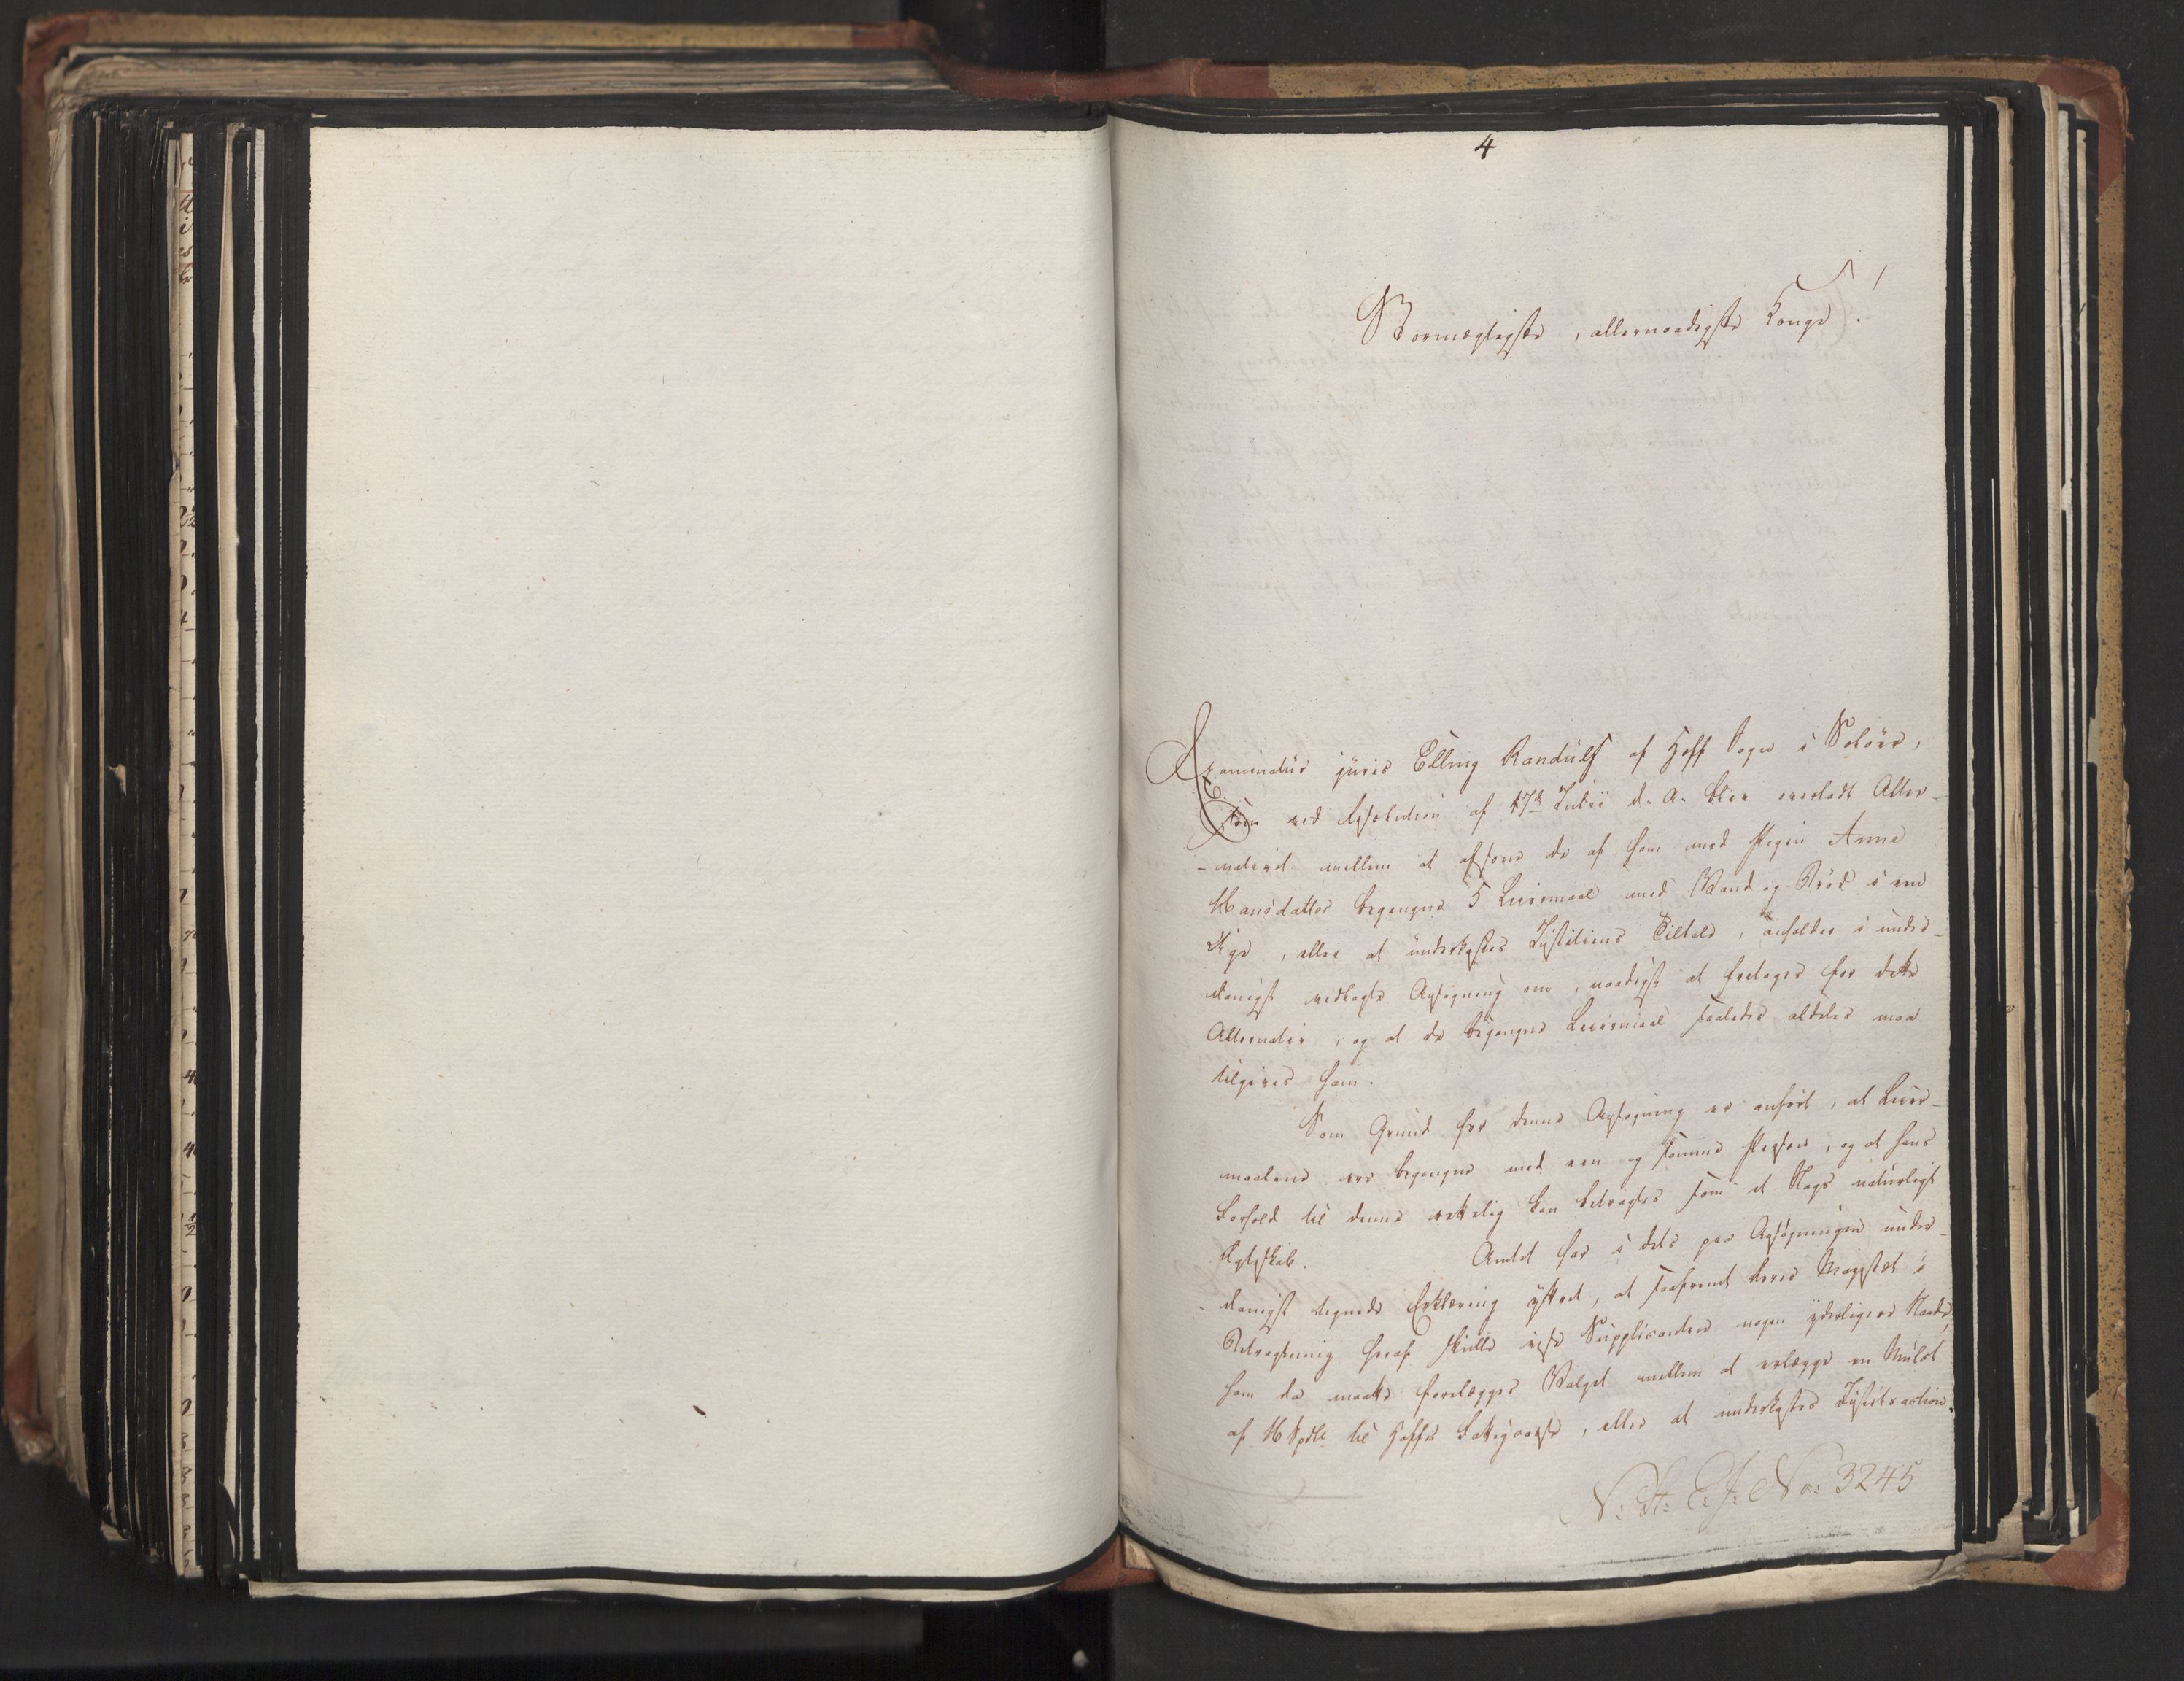 4
Stormægtigste, allernaadigste Konge!
Examinatus juris Elling Randulf af Hoff Sogn i Soløer,
som ved Resolution af 17d Julii d. A. blev overladt Alter-
-nativet mellem at afsone de af ham med Pigen Anne
Hansdatter begangne 5 Leiermaal med Vand og Brød i en
Uge, eller at underkastes Justitiens Tiltale, anholder i under-
danigst vedlagte Ansøgning om, naadigst at fritages for dette
Alternativ, og at de begangne Leiermaal saaledes aldeles maa
tilgives ham.
Som Grund for denne Ansøgning er anført, at Leier-
maalene ere begangne med een og samme Person, og at hans
Forhold til denne rettelig kan betragtes som et Slags naturligt
Ægteskab. Amtet har i dets paa Ansøgningen under-
-danigst tegnede Erklæring yttret, at saafremt Deres Majestæt i
Betragtning heraf skulde vise Supplicanten nogen yderligere Naade,
ham da maatte forelægges Valget mellem at erlægge en Mulct
af 16 Spdlr til Hoffs Fattigcasse, eller at underkastes Justitsaction.
N: St: C: J: No: 3245